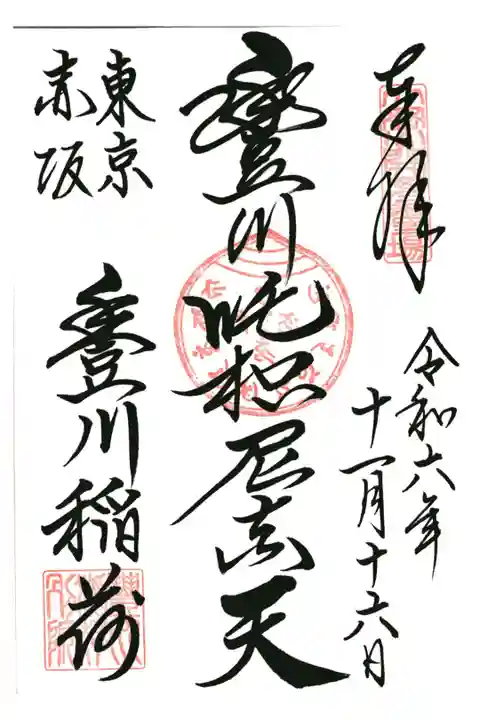 奉拝
令和六年
十一月十六日
豐川吒枳尼真天
東京
赤坂
豐川稲荷